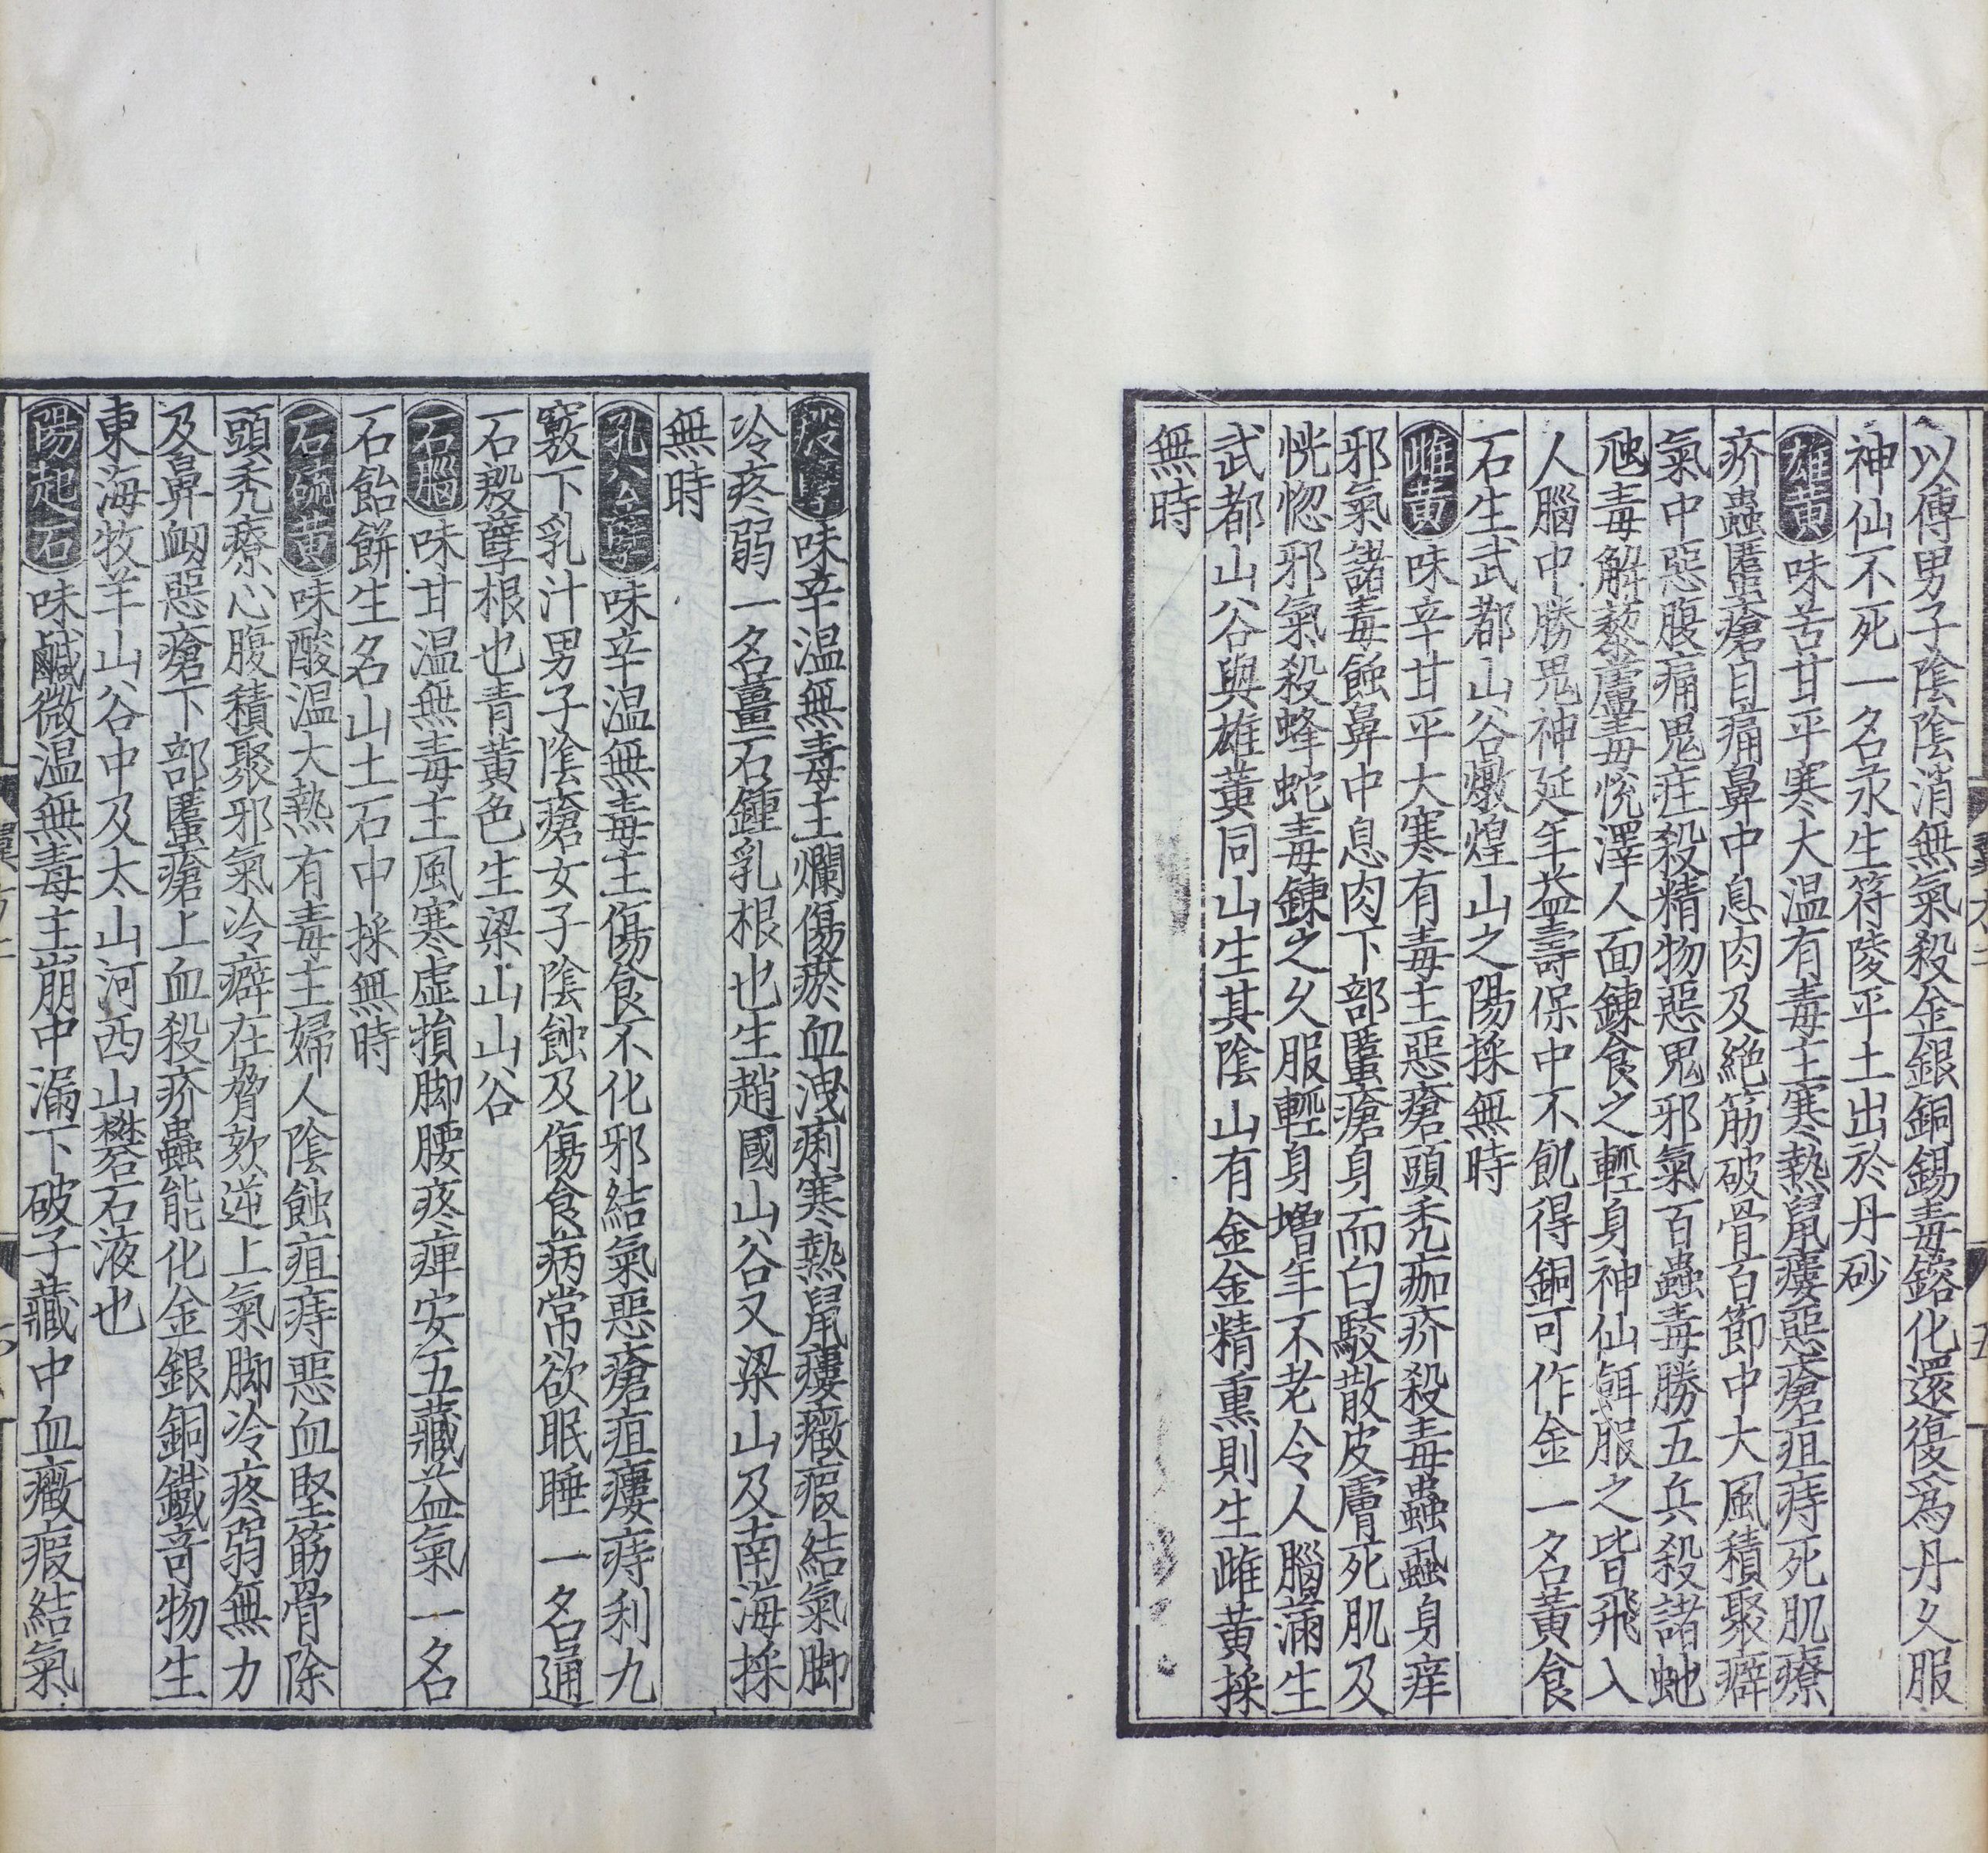 以傅男子陰陰消無氣殺金銀銅錫毒鎔化還復爲丹久服
神仙不死一名永生符陵平土出於丹砂
雄黄味苦甘平寒大温有毒主寒熱鼠瘻惡瘡疽痔死肌療
疥蟲䘌瘡目痛鼻中息肉及絶筋破骨百節中大風積聚癖
氣中惡腹痛鬼疰殺精物惡鬼邪氣百蟲毒勝五兵殺諸虵
虺毒解藜蘆毒恱澤人面鍊食之輕身神仙餌服之皆飛入
人腦中勝鬼神延年益壽保中不飢得銅可作金一名黄食
石生武都山谷燉煌山之陽採無時
雌黄味辛甘平大寒有毒主惡瘡頭禿痂疥殺毒蟲虱身痒
邪氣諸毒蝕鼻中息肉下部䘌瘡身面白駮散皮膚死肌及
恍惚邪氣殺蜂蛇毒鍊之久服輕身增年不老令人腦滿生
武都山谷與雄黄同山生其陰山有金金精熏則生雌黄採
無時
殷孽味辛温無毒主爛傷瘀血洩痢寒熱鼠瘻癥瘕結氣脚
冷疼弱一名薑石鍾乳根也生趙國山谷又梁山及南海採
無時
孔公孽味辛温無毒主傷食不化邪結氣惡瘡疽瘻痔利九
竅下乳汁男子陰瘡女子陰蝕及傷食病常欲眠睡一名通
石殷孽根也青黄色生梁山山谷
石腦味甘温無毒主風寒虚損脚腰疼痺安五藏益氣一名
石飴餅生名山土石中採無時
石硫黄味酸温大熱有毒主婦人陰蝕疽痔惡血堅筋骨除
頭禿療心腹積聚邪氣冷癖在脅欬逆上氣脚冷疼弱無力
及鼻衂惡瘡下部䘌瘡上血殺疥蟲能化金銀銅鐵竒物生
東海牧羊山谷中及太山河西山礬石液也
陽起石味鹹微温無毒主崩中漏下破子藏中血癥瘕結氣